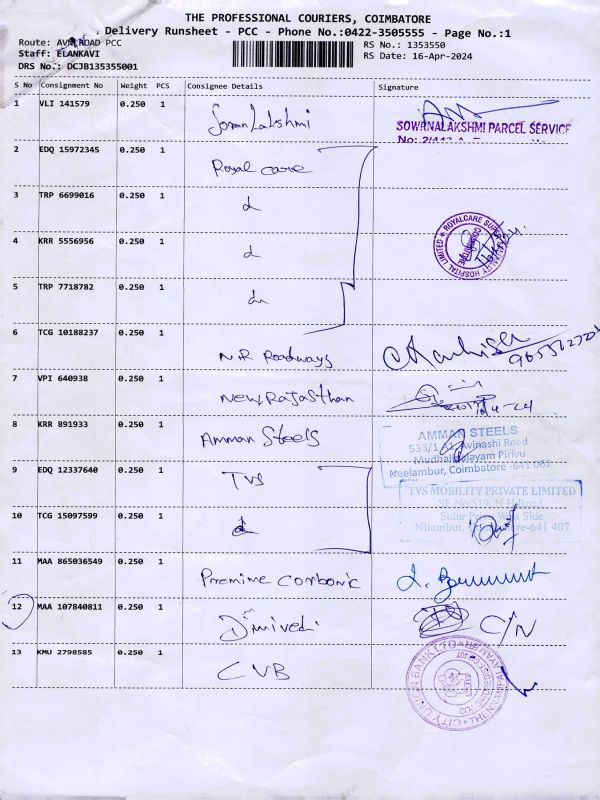 THE PROFESSIONAL COURIERS, COIMBATORE
Delivery Runsheet - PCC - Phone No.:0422-3505555 - Page No.:1
Route: AVI ROAD PCC
RS No.: 1353550
Staff: ELANKAVI
RS Date: 16-Apr-2024
DRS No.: DCJB135355001
S No Consignment No Weight PCS Consignee Details Signature
1 VLI 141579 0.250 1 Lakshmi
SOWRNALAKSHMI PARCEL SERVICE
No:
2 EDQ 15972345 0.250 1 Royal care
3 TRP 6699016 0.250 1
ROYALCARE SUPER SPECIALITY HOSPITAL LIMITED
4 KRR 5556956 0.250 1
5 TRP 7718782 0.250 1
6 TCG 10188237 0.250 1 N.R Roadways
7 VPI 640938 0.250 1 New Rajasthan
8 KRR 891933 0.250 1 Amman Steels
AMMAN STEELS
Avinashi Road
Pirivu
Neelambur, Coimbatore -641 062
9 EDQ 12337640 0.250 1 TVS
TVS MOBILITY PRIVATE LIMITED
SF No 519, N H Road
Side
10 TCG 15097599 0.250 1
Nilambur, -641 407
11 MAA 865036549 0.250 1 Premine Carbonic
12 MAA 107840811 0.250 1 C/N
13 KMU 2798585 0.250 1 CVB
CITY UNION BANK LTD